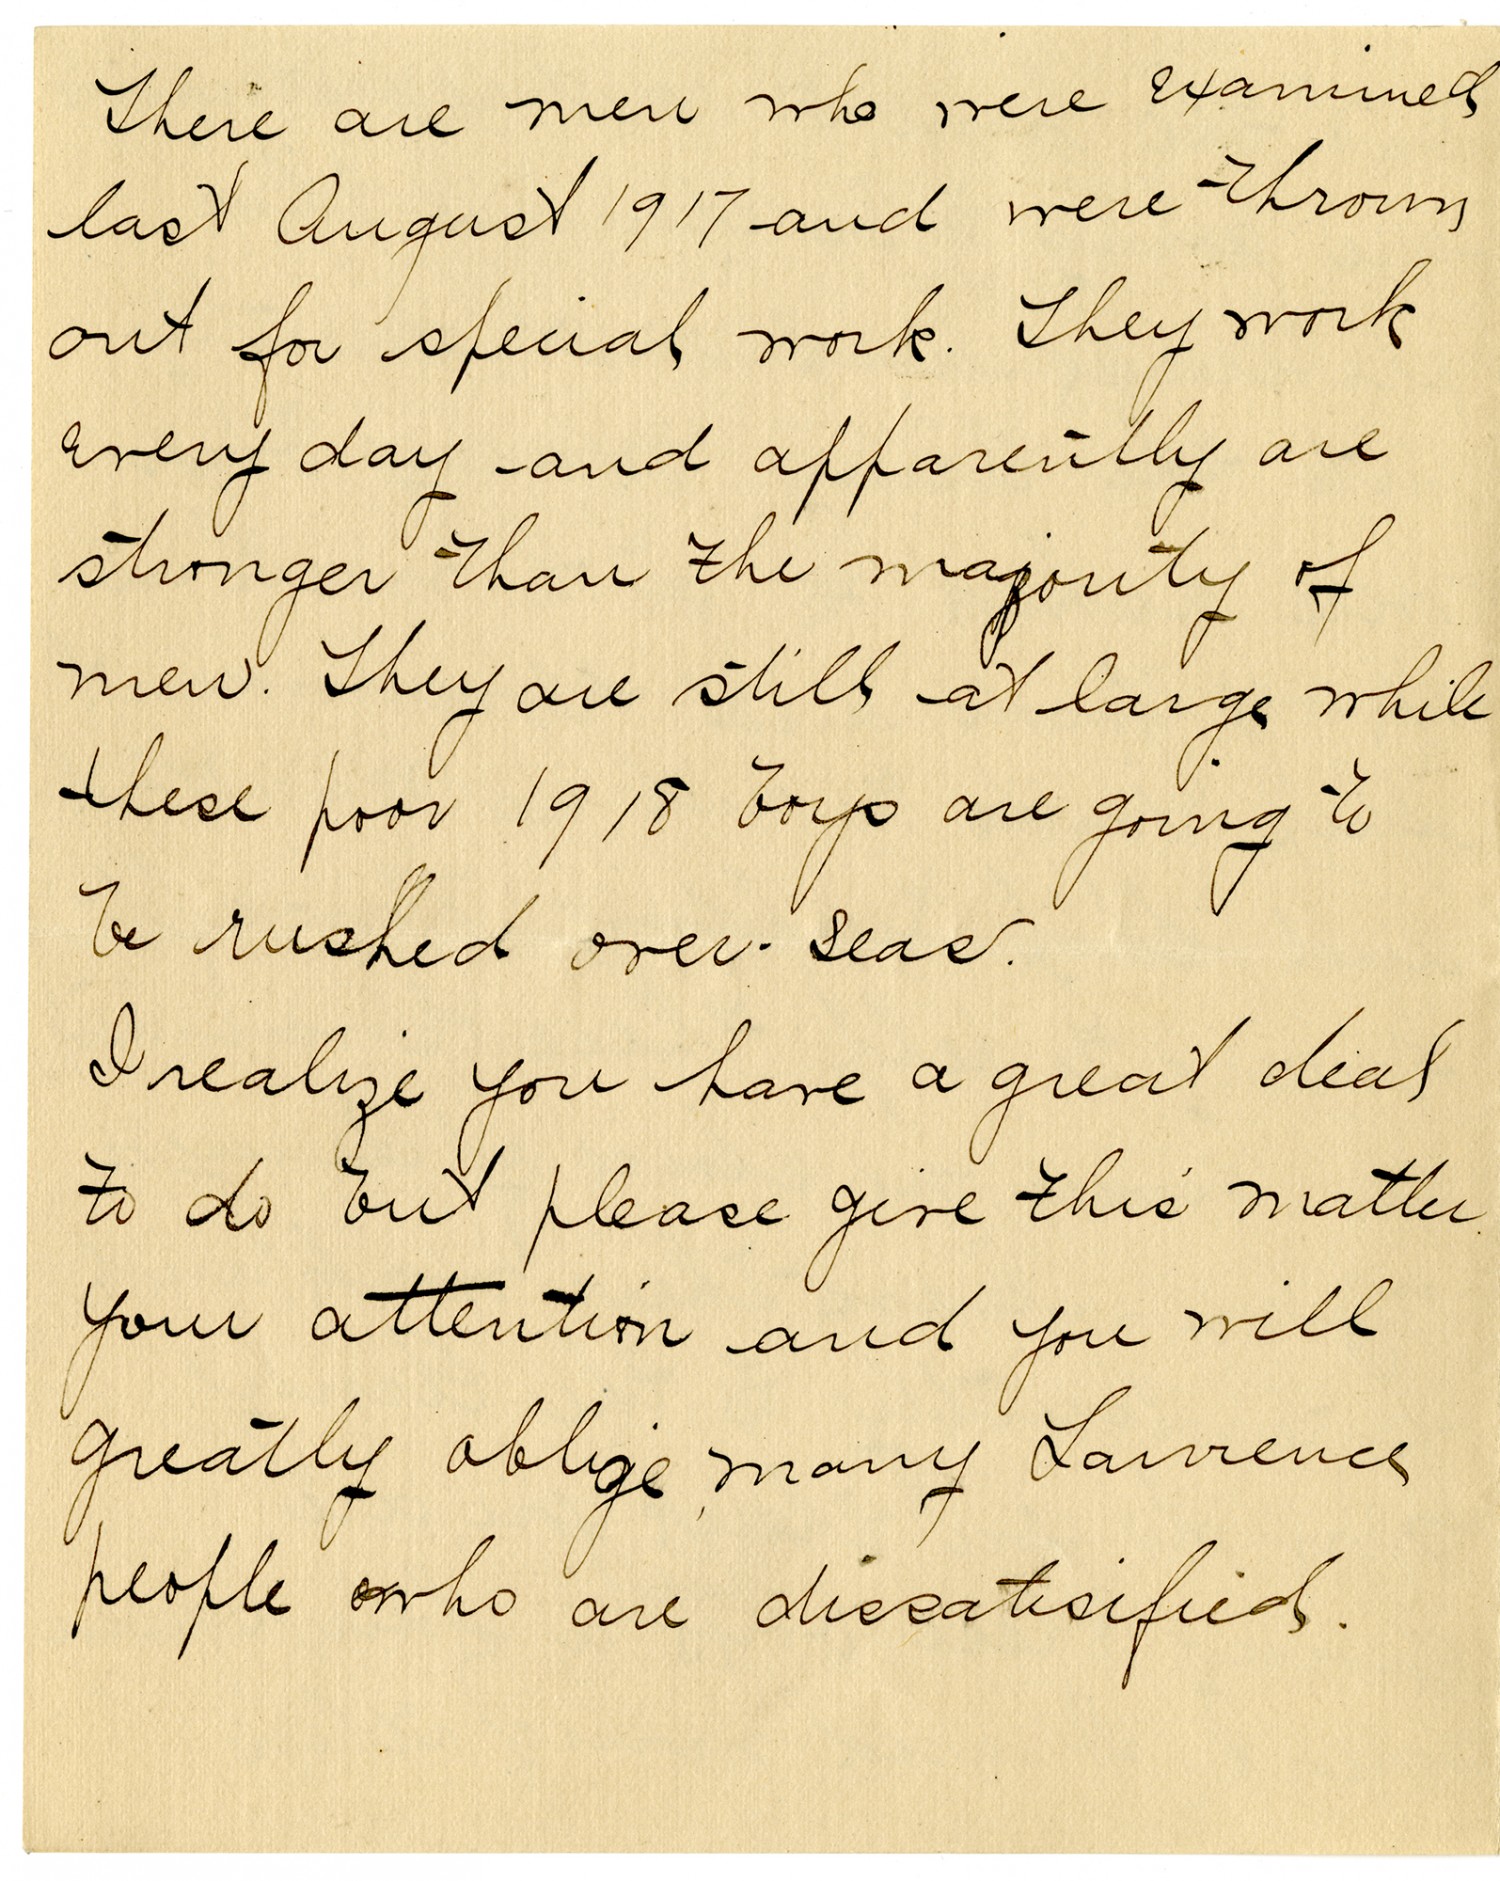 There are men who were examined
last August 1917 and were thrown
out for special work. They work
every day and apparently are
stronger than the majority of
men. They are still at large while
these poor 1918 boys are going to
be rushed over-seas.
I realize you have a great deal
to do but please give this matter
your attention and you will
greatly oblige many Lawrence
people who are dissatisified.